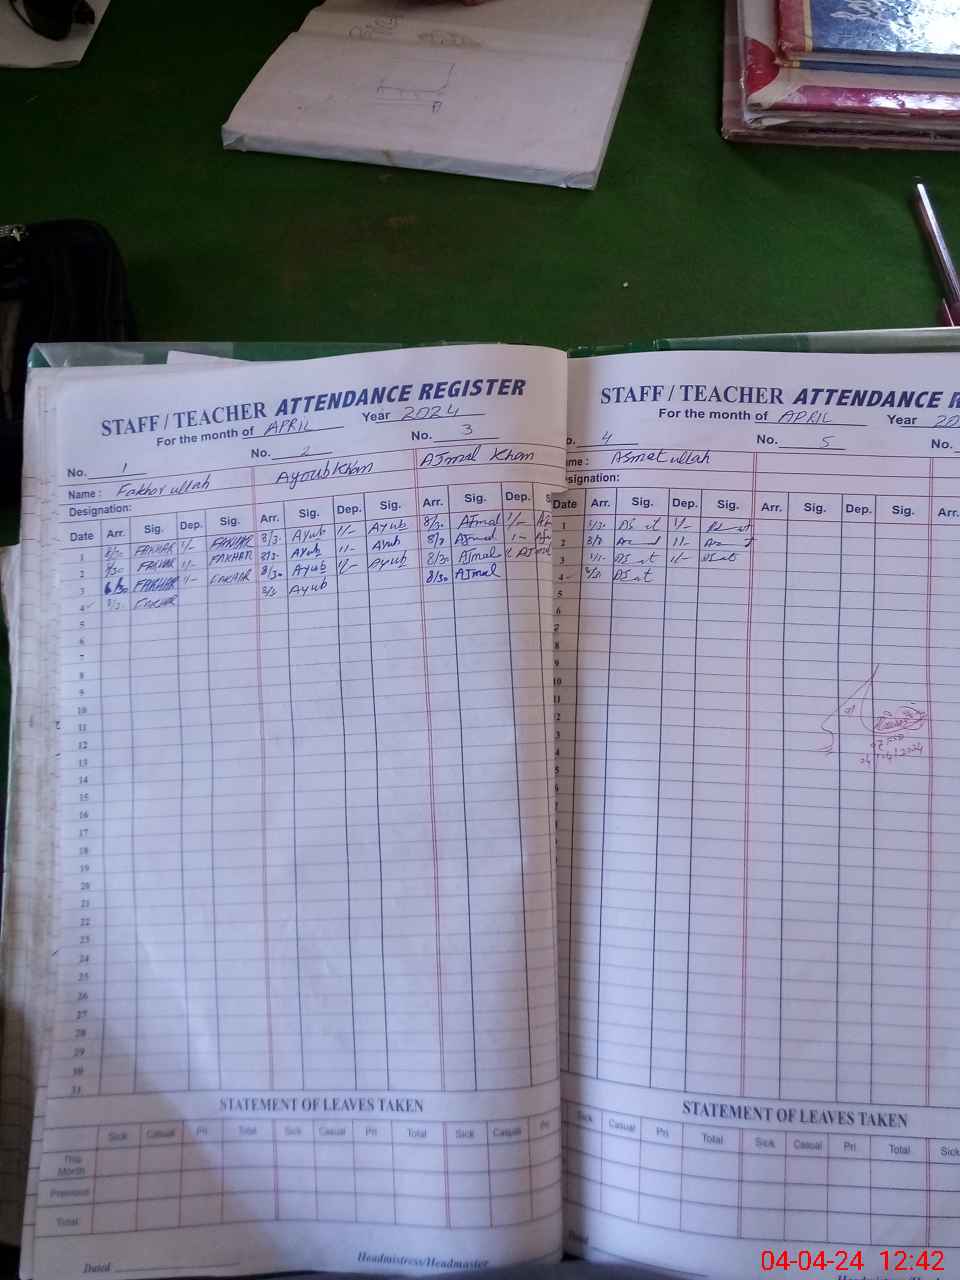 STAFF / TEACHER ATTENDANCE REGISTER
For the month of APRIL Year 2024
No. 1 No. 2 No. 3
Name : Fakhar ullah Ayoub Khan AJmal Khan
Designation:
Date Arr. Sig. Dep. Sig. Arr. Sig. Dep. Sig. Arr. Sig. Dep. S
1 8/30 FAKHAR 1/- FAKHAR 8/3. Ayub 1/- Ayub 8/3. AJmal 1/- AJ
2 8/30 FAKHAR 1/- FAKHAR 8/3. Ayub 1/- Ayub 8/3 AJmal 1- AJm
3 8/30 FAKHAR 1/- FAKHAR 8/30 Ayub 1/- Ayub 8/30 AJmal AJmal
4 8/3. FAKHAR 8/3 Ayub 8/30 AJmal
5
6
7
8
9
10
11
12
13
14
15
16
17
18
19
20
21
22
23
24
25
26
27
28
29
30
31
STATEMENT OF LEAVES TAKEN
Sick Casual Pri Total Sick Casual Pri Total Sick Casual Pri
This Month
Previous
Total
Dated Headmistress/Headmaster
STAFF / TEACHER ATTENDANCE R
For the month of APRIL Year 20
o. 4 No. 5 No.
me : ASmat ullah
signation:
Date Arr. Sig. Dep. Sig. Arr. Sig. Dep. Sig. Arr.
1 8/30 1/-
2 8/3 1/-
3 1/-
4 8/30
5
6
7
8
9
10
11
2
3
4
5
6
7
8
9
0
1
2
3
4
5
04/04/2024
STATEMENT OF LEAVES TAKEN
Sick Casual Pri Total Sick Casual Pri Total Sick
04-04-24 12:42